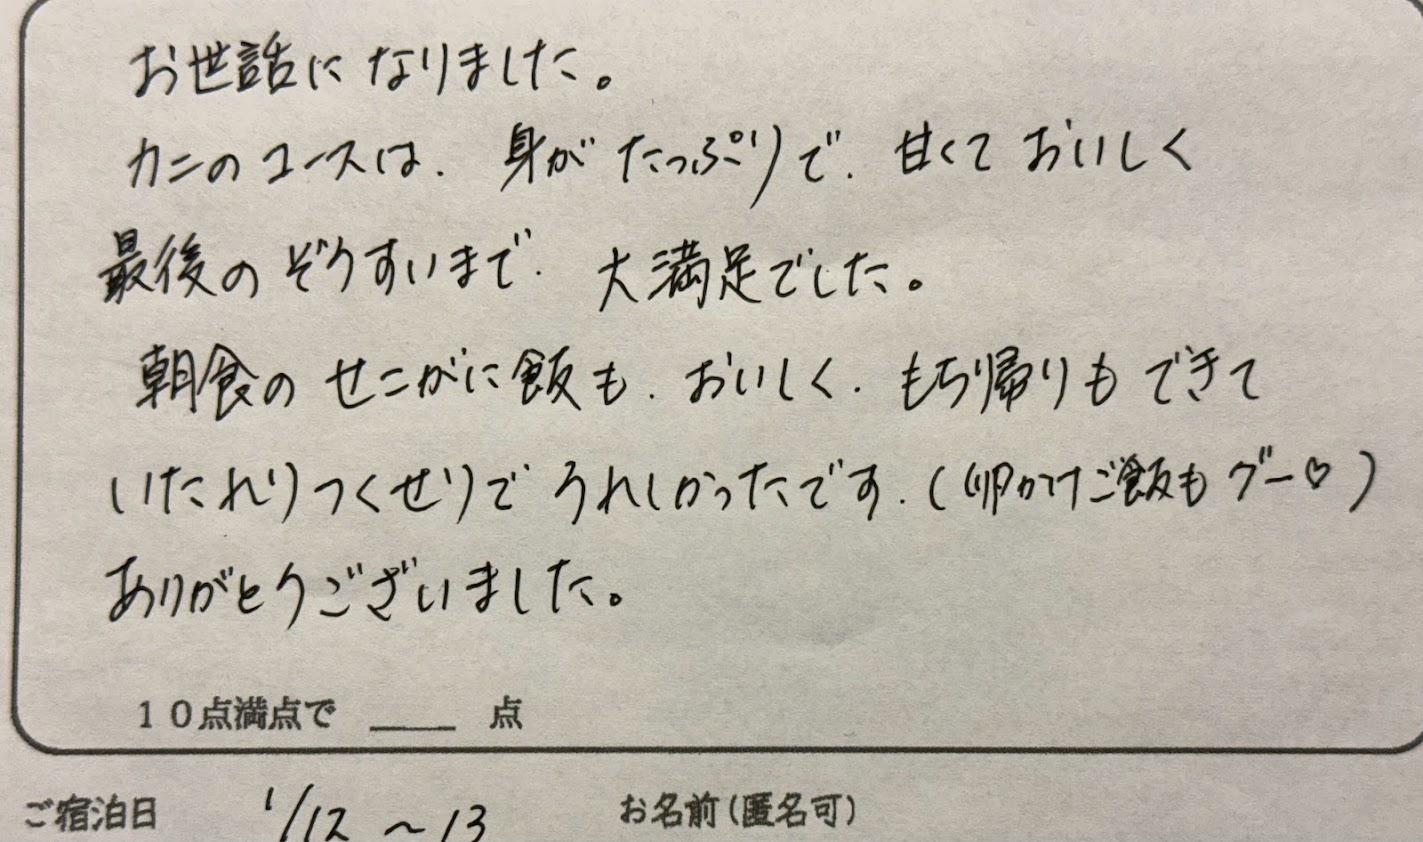 お世話になりました。
カニのコースは、身がたっぷりで、甘くておいしく
最後のぞうすいまで、大満足でした。
朝食のせこがに飯も、おいしく、もち帰りもできて
いたれりつくせりでうれしかったです。(卵かけご飯もグー♡)
ありがとうございました。
10点満点で ____ 点
ご宿泊日 1/12 ~ 13 お名前(匿名可)